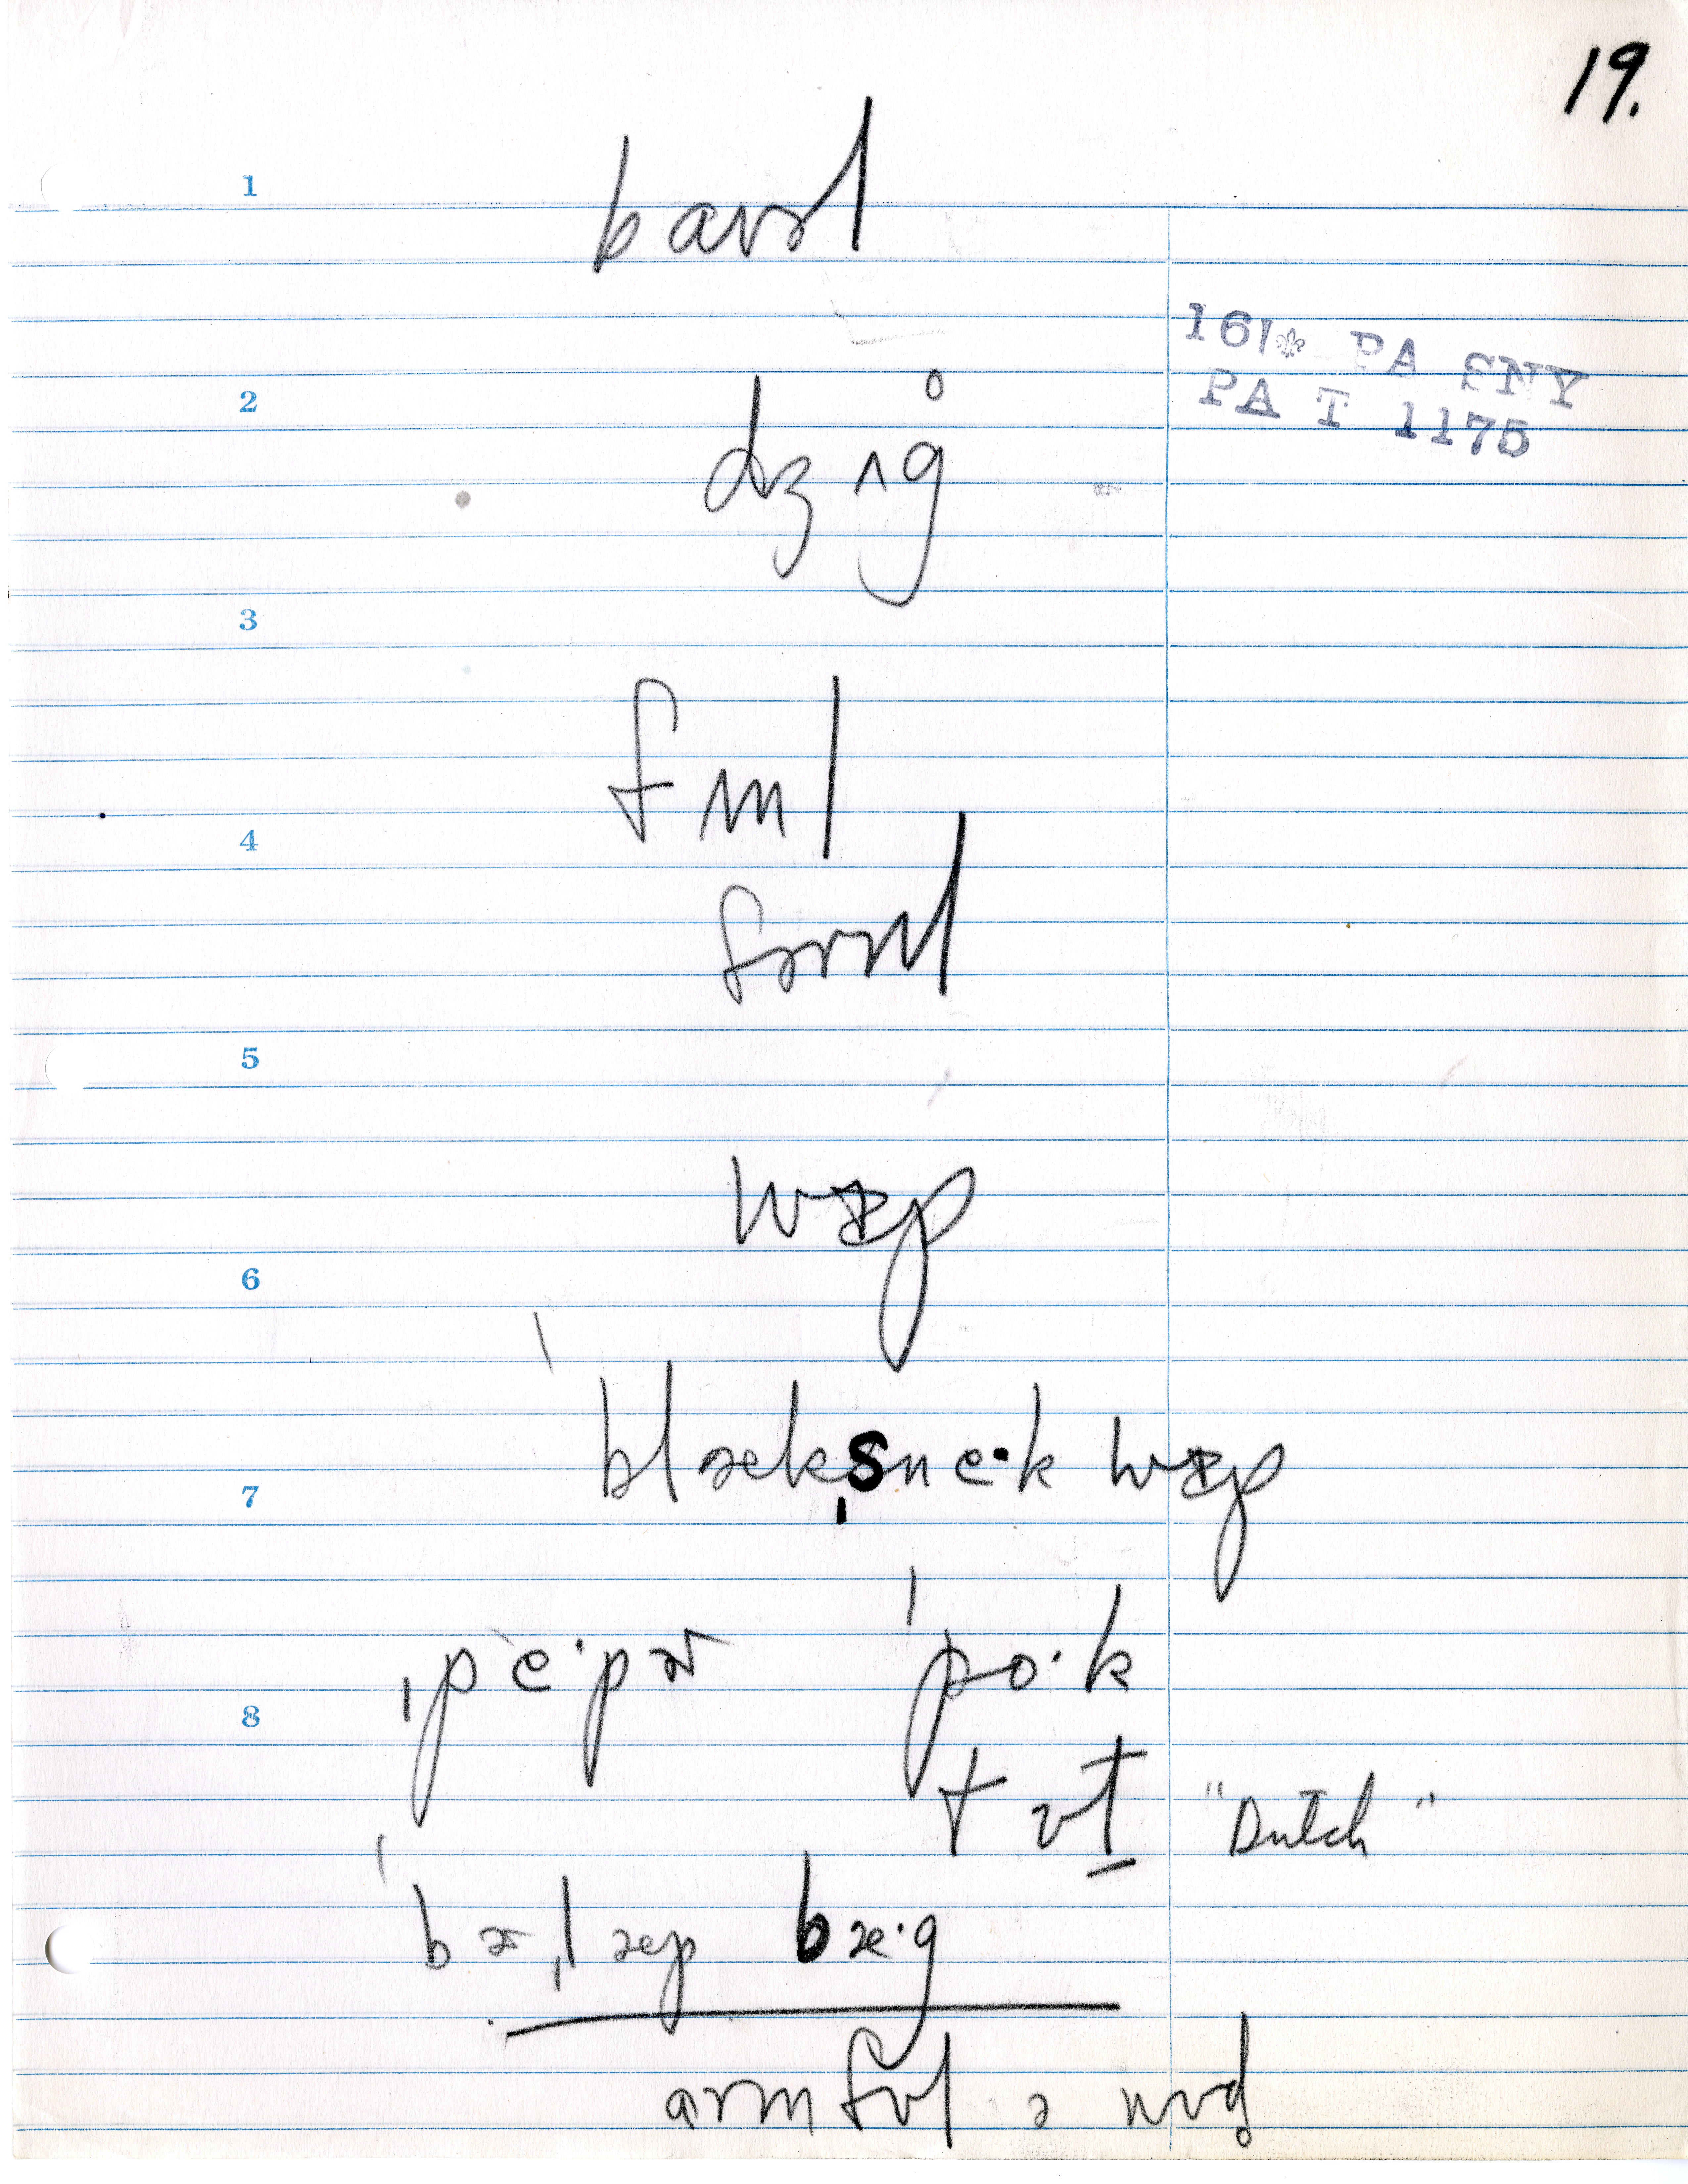 19.
1
barəl
161⚜ PA SNY
PA T 1175
2
dʒʌg̊
3
fʌnl
4
fərnl
5
wɪp
6
ˈblækˌsne·k wɪp
7
ˌpe·pɚ ˈpo·k
8
tʊt̲ "Dutch"
ˈbɚˌlæp bæ·g
armfʊl ə wʊd̥